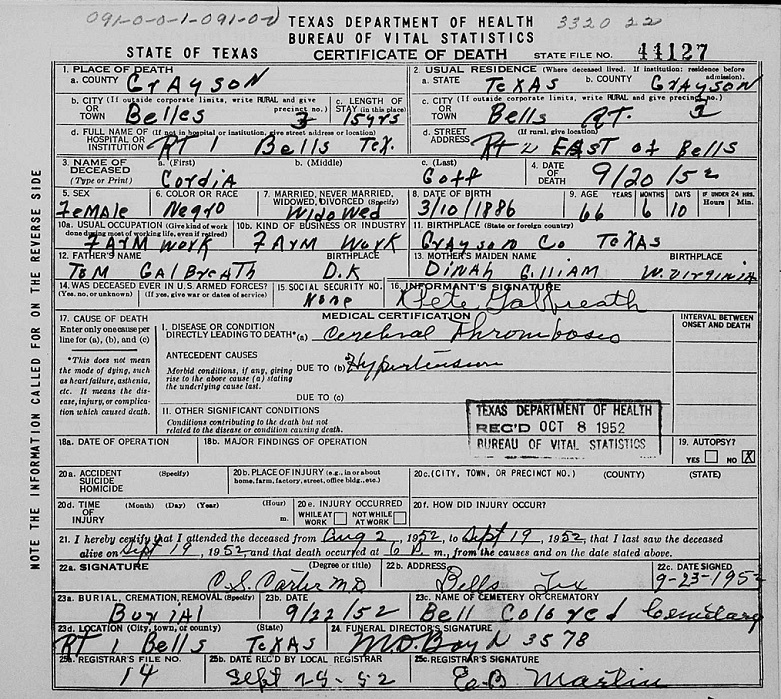 091-0-0-1-091-0-0 TEXAS DEPARTMENT OF HEALTH 3320 22
BUREAU OF VITAL STATISTICS
STATE OF TEXAS CERTIFICATE OF DEATH STATE FILE NO. 44127
NOTE THE INFORMATION CALLED FOR ON THE REVERSE SIDE
1. PLACE OF DEATH 2. USUAL RESIDENCE (Where deceased lived. If institution: residence before admission).
a. COUNTY GrAYSON a. STATE TeXAS b. COUNTY GrAYSON
b. CITY (If outside corporate limits, write RURAL and give precinct no.) OR TOWN Belles 3 c. LENGTH OF STAY (in this place) 15yrs c. CITY (If outside corporate limits, write RURAL and give precinct no.) OR TOWN Bells RT. 3
d. FULL NAME OF (If not in hospital or institution, give street address or location) HOSPITAL OR INSTITUTION RT 1 Bells Tex. d. STREET ADDRESS (If rural, give location) Rt 2 EAST of Bells
3. NAME OF DECEASED (Type or Print) a. (First) CordiA b. (Middle) c. (Last) Goff 4. DATE OF DEATH 9/20/52
5. SEX FeMAle 6. COLOR OR RACE Negro 7. MARRIED, NEVER MARRIED, WIDOWED, DIVORCED (Specify) WidoWed 8. DATE OF BIRTH 3/10/1886 9. AGE YEARS 66 MONTHS 6 DAYS 10 IF UNDER 24 HRS. Hours Min.
10a. USUAL OCCUPATION (Give kind of work done during most of working life, even if retired) FArM Work 10b. KIND OF BUSINESS OR INDUSTRY FArM Work 11. BIRTHPLACE (State or foreign country) GrAYson Co TeXAS
12. FATHER'S NAME BIRTHPLACE ToM GalBreATh D.K 13. MOTHER'S MAIDEN NAME BIRTHPLACE DiNAh GilliAM W. Virginia
14. WAS DECEASED EVER IN U.S. ARMED FORCES? (Yes, no, or unknown) (If yes, give war or dates of service) 15. SOCIAL SECURITY NO. None 16. INFORMANT'S SIGNATURE X Pete Galbreath
MEDICAL CERTIFICATION
17. CAUSE OF DEATH
Enter only one cause per line for (a), (b), and (c)
*This does not mean the mode of dying, such as heart failure, asthenia, etc. It means the disease, injury, or complication which caused death.
I. DISEASE OR CONDITION DIRECTLY LEADING TO DEATH*(a) Cerebral Thrombosis
INTERVAL BETWEEN ONSET AND DEATH
ANTECEDENT CAUSES
Morbid conditions, if any, giving rise to the above cause (a) stating the underlying cause last.
DUE TO (b) Hypertension
DUE TO (c)
II. OTHER SIGNIFICANT CONDITIONS
Conditions contributing to the death but not related to the disease or condition causing death.
TEXAS DEPARTMENT OF HEALTH
REC'D OCT 8 1952
BUREAU OF VITAL STATISTICS
18a. DATE OF OPERATION 18b. MAJOR FINDINGS OF OPERATION 19. AUTOPSY? YES NO X
20a. ACCIDENT SUICIDE HOMICIDE (Specify) 20b. PLACE OF INJURY (e.g., in or about home, farm, factory, street, office bldg., etc.) 20c. (CITY, TOWN, OR PRECINCT NO.) (COUNTY) (STATE)
20d. TIME OF INJURY (Month) (Day) (Year) (Hour) m. 20e. INJURY OCCURRED WHILE AT WORK NOT WHILE AT WORK 20f. HOW DID INJURY OCCUR?
21. I hereby certify that I attended the deceased from Aug 2, 1952, to Sept 19, 1952, that I last saw the deceased
alive on Sept 19, 1952 and that death occurred at 6 P. m., from the causes and on the date stated above.
22a. SIGNATURE (Degree or title) C.S. Carter M.D 22b. ADDRESS Bells Tex 22c. DATE SIGNED 9-23-1952
23a. BURIAL, CREMATION, REMOVAL (Specify) BuriAl 23b. DATE 9/22/52 23c. NAME OF CEMETERY OR CREMATORY Bell Colored Cemetary
23d. LOCATION (City, town, or county) (State) RT 1 Bells TeXAS 24. FUNERAL DIRECTOR'S SIGNATURE M.D. Boyd 3578
25a. REGISTRAR'S FILE NO. 14 25b. DATE REC'D BY LOCAL REGISTRAR Sept 24-52 25c. REGISTRAR'S SIGNATURE E.B Martin